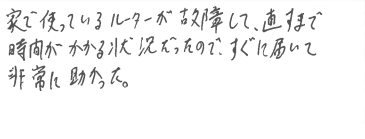 家で使っているルーターが故障して、直すまで
時間がかかる状況だったので、すぐに届いて
非常に助かった。